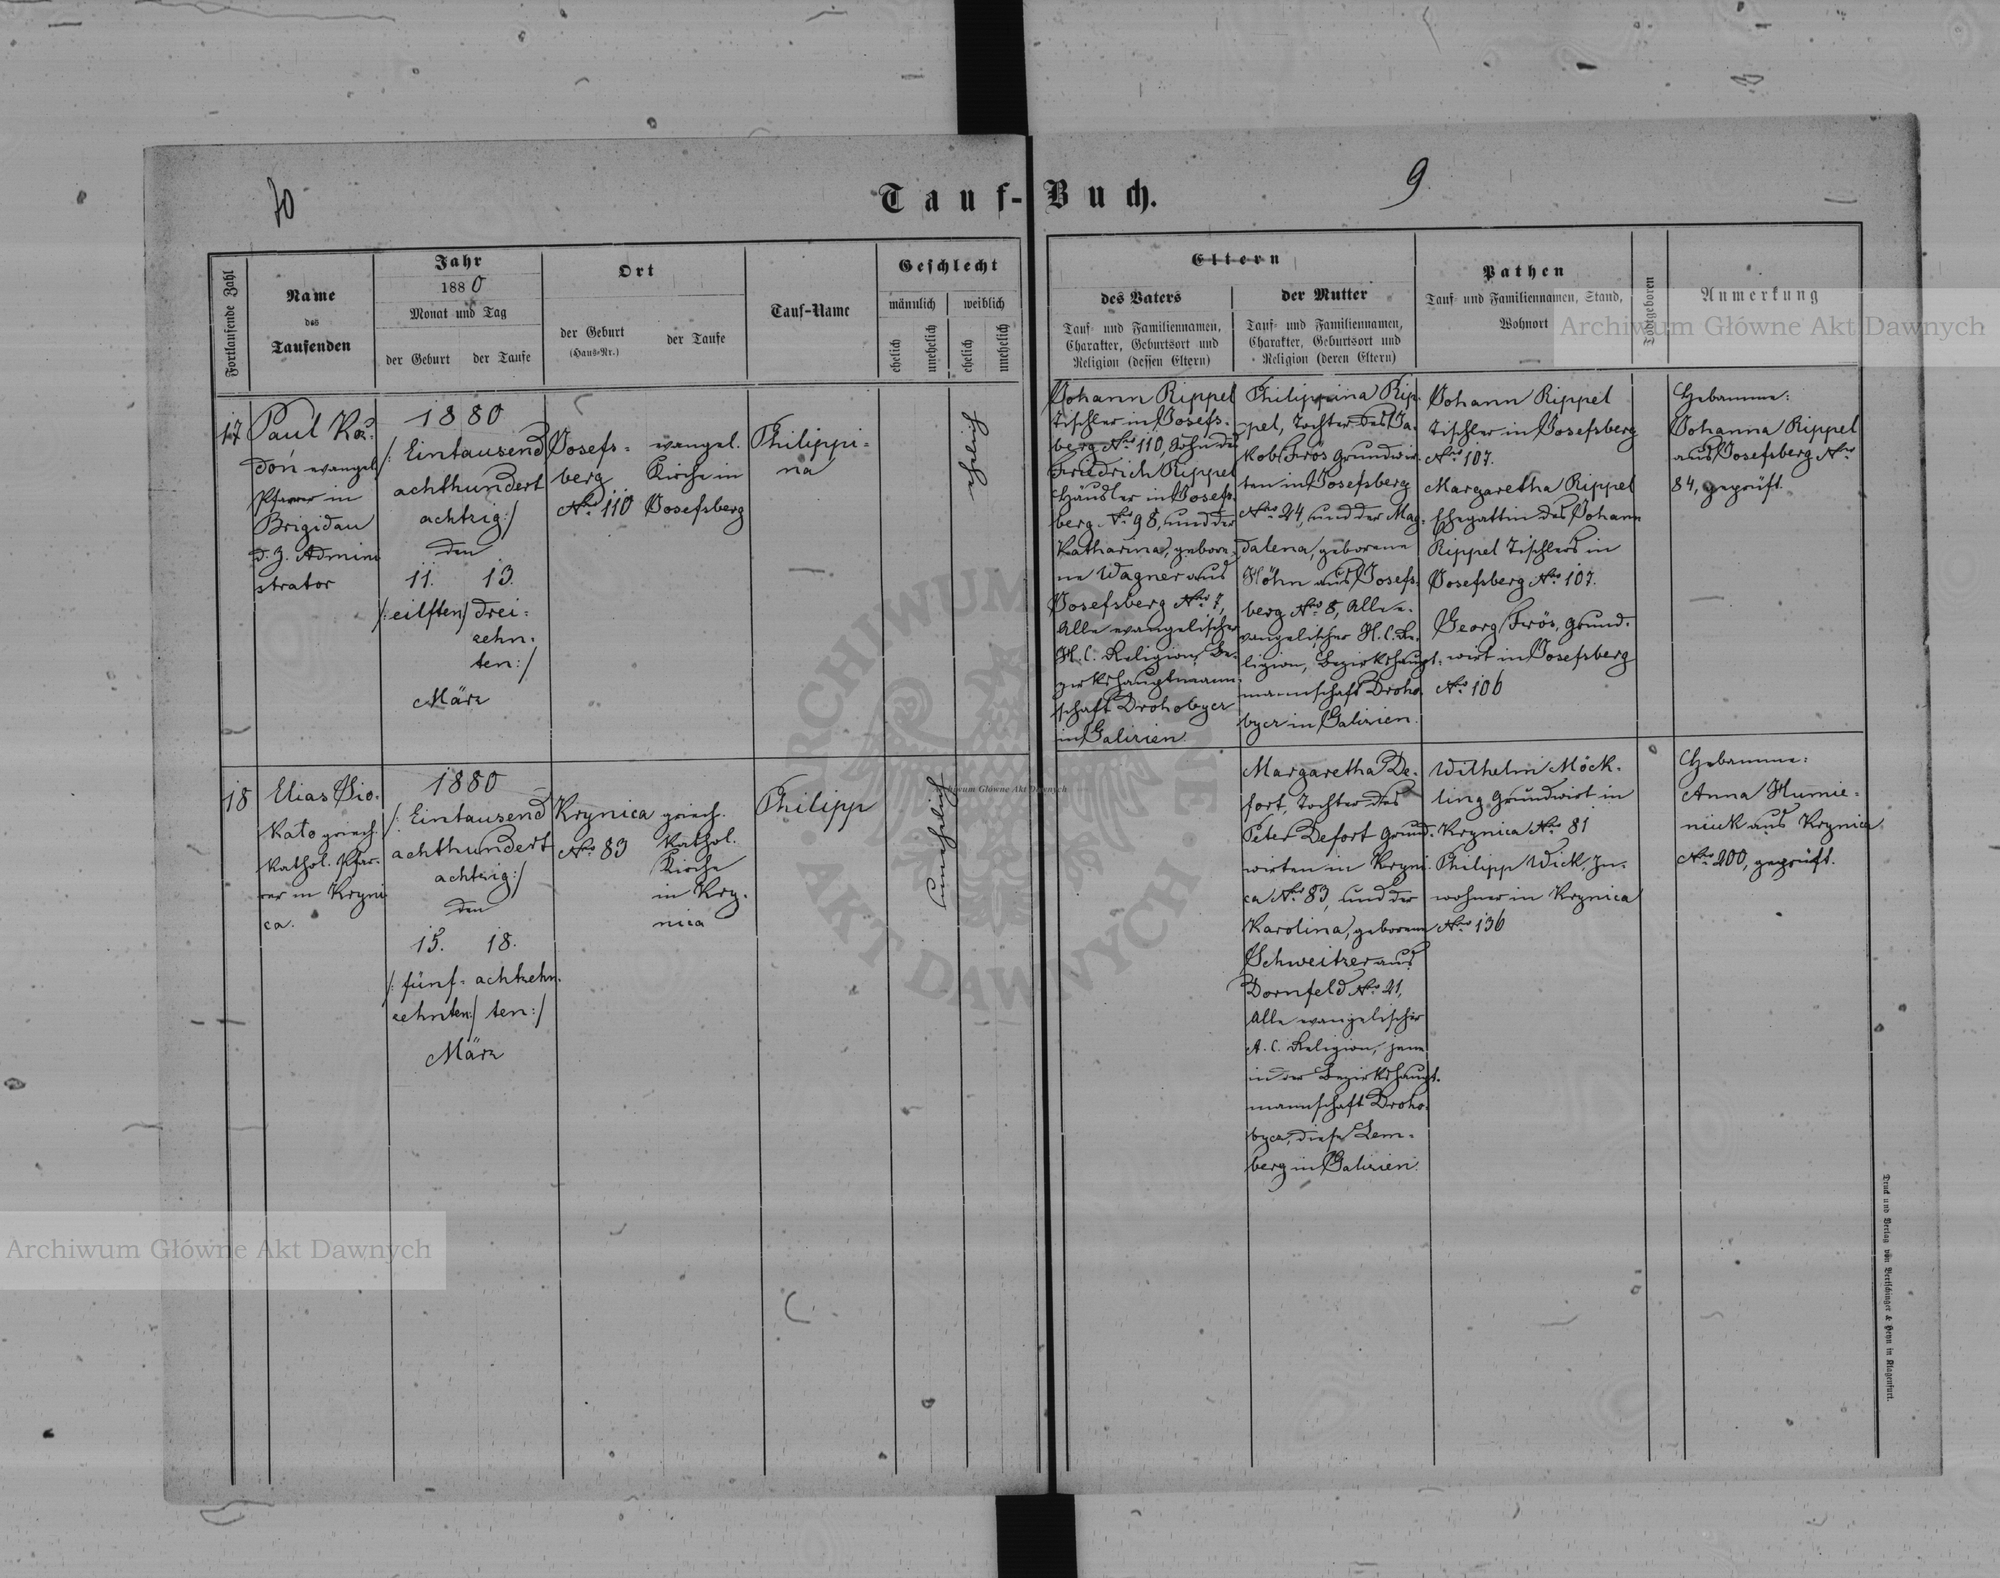 70
Tauf-Buch.
9.
Fortlaufende Zahl
Name
des
Taufenden
Jahr
1880
Monat und Tag
der Geburt
der Taufe
Ort
der Geburt
(Haus-Nr.)
der Taufe
Tauf-Name
Geschlecht
männlich
weiblich
ehelich
unehelich
ehelich
unehelich
Eltern
des Vaters
Tauf- und Familiennamen,
Charakter, Geburtsort und
Religion (dessen Eltern)
der Mutter
Tauf- und Familiennamen,
Charakter, Geburtsort und
Religion (deren Eltern)
Pathen
Tauf- und Familiennamen, Stand,
Wohnort
Todtgeboren
Anmerkung
17
Paul Ko-
don evangel.
Pfarrer in
Brigidau
d. Z. Admini
strator
1880
/: Eintausend
achthundert
achtzig :/
den
11. 13.
/: eilften/ drei-
zehn-
ten :/
März
Josefs-
berg
No 110
evangel.
Kirche in
Josefsberg
Philippi-
na
ehelich
Johann Rippel
Tischler in Josefs-
berg No 110, Sohn des
Friedrich Rippel
Häusler in Josefs-
berg No 98, und der
Katharina, gebore-
ne Wagner aus
Josefsberg No 7,
Alle evangelischer
H. C. Religion, Be-
zirkshauptmann-
schaft Drohobycz
in Galizien.
Philippina Rip-
pel, Tochter des Ja-
kob Frös Grundwir-
ten in Josefsberg
No 24, und der Mag-
dalena, geborene
Höhn aus Josefs-
berg No 8, Alle e-
vangelischer H. C. Re-
ligion, Bezirkshaupt-
mannschaft Droho-
bycz in Galizien.
Johann Rippel
Tischler in Josefsberg
No 107.
Margaretha Rippel
Ehegattin des Johann
Rippel Tischlers in
Josefsberg No 107.
Georg Frös, Grund-
wirt in Josefsberg
No 106
Hebamme:
Johanna Rippel
aus Josefsberg No
84, geprüft.
18
Elias Sio-
kało griech.
kathol. Pfar-
rer in Kryni
ca.
1880
/: Eintausend
achthundert
achtzig :/
den
15. 18.
/: fünf- achtzehn-
zehnten :/ ten :/
März
Krynica
No 83
griech.
kathol.
Kirche
in Kry-
nica
Philipp
unehelich
Margaretha De-
fort, Tochter des
Peter Defort Grund-
wirten in Kryni-
ca No 83, und der
Karolina, geborene
Schweitzer aus
Dornfeld No 21,
Alle evangelischer
A. C. Religion, jene
in der Bezirkshaupt-
mannschaft Droho-
bycz, diese Lem-
berg in Galizien.
Wilhelm Möck-
ling Grundwirt in
Krynica No 81
Philipp Wick, In-
wohner in Krynica
No 136
Hebamme:
Anna Humie-
niuk aus Krynica
No 200, geprüft.
Druck und Verlag von Bertschinger & Heyn in Klagenfurt.
Archiwum Główne Akt Dawnych
Archiwum Główne Akt Dawnych
Archiwum Główne Akt Dawnych
ARCHIWUM GŁÓWNE AKT DAWNYCH